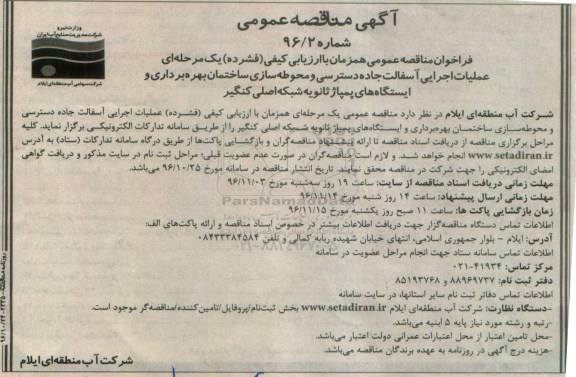 آگهی مناقصه عمومی
شماره ۹۶/۲
وزارت نیرو
شرکت مدیریت منابع آب ایران
شرکت سهامی آب منطقه‌ای ایلام
فراخوان مناقصه عمومی همزمان با ارزیابی کیفی (فشرده) یک مرحله‌ای
عملیات اجرایی آسفالت جاده دسترسی و محوطه سازی ساختمان بهره برداری و
ایستگاه های پمپاژ ثانویه شبکه اصلی کنگیر
شرکت آب منطقه‌ای ایلام در نظر دارد مناقصه عمومی یک مرحله‌ای همزمان با ارزیابی کیفی (فشرده) عملیات اجرایی آسفالت جاده دسترسی
و محوطه‌سازی ساختمان بهره‌برداری و ایستگاه‌های پمپاژ ثانویه شبکه اصلی کنگیر را از طریق سامانه تدارکات الکترونیکی برگزار نماید. کلیه
مراحل برگزاری مناقصه از دریافت اسناد مناقصه تا ارائه پیشنهاد مناقصه‌گران و بازگشایی پاکت‌ها از طریق درگاه سامانه تدارکات (ستاد) به آدرس
www.setadiran.ir انجام خواهد شد. و لازم است مناقصه‌گران در صورت عدم عضویت قبلی، مراحل ثبت نام در سایت مذکور و دریافت گواهی
امضای الکترونیکی را جهت شرکت در مناقصه محقق نمایند. تاریخ انتشار مناقصه در سامانه مورخ ۹۶/۱۰/۲۵ می‌باشد.
مهلت زمانی دریافت اسناد مناقصه از سایت: ساعت ۱۹ روز سه‌شنبه مورخ ۹۶/۱۱/۰۳
مهلت زمانی ارسال پیشنهاد: ساعت ۱۴ روز شنبه مورخ ۹۶/۱۱/۱۴
زمان بازگشایی پاکت ها: ساعت ۱۱ صبح روز یکشنبه مورخ ۹۶/۱۱/۱۵
اطلاعات تماس دستگاه مناقصه‌گزار جهت دریافت اطلاعات بیشتر در خصوص اسناد مناقصه و ارائه پاکت‌های الف:
آدرس: ایلام - بلوار جمهوری اسلامی، انتهای خیابان شهیده ربابه کمالی و تلفن ۰۸۴۳۳۳۸۴۵۸۴
اطلاعات تماس سامانه ستاد جهت انجام مراحل عضویت در سامانه
مرکز تماس: ۴۱۹۳۴-۰۲۱
دفتر ثبت نام: ۸۸۹۶۹۷۳۷ و ۸۵۱۹۳۷۶۸
اطلاعات تماس دفاتر ثبت نام سایر استانها، در سایت سامانه
-دستگاه نظارت: شرکت آب منطقه‌ای ایلام www.setadiran.ir بخش ثبت‌نام/پروفایل/تامین‌کننده/مناقصه‌گر موجود است.
-رتبه و رشته مورد نیاز پایه ۵ ابنیه می‌باشد.
-محل تامین اعتبار از محل اعتبارات عمرانی دولت اعتبار می‌باشد.
-هزینه درج آگهی در روزنامه به عهده برندگان مناقصه می‌باشد.
شرکت آب منطقه‌ای ایلام
ParsNamadData